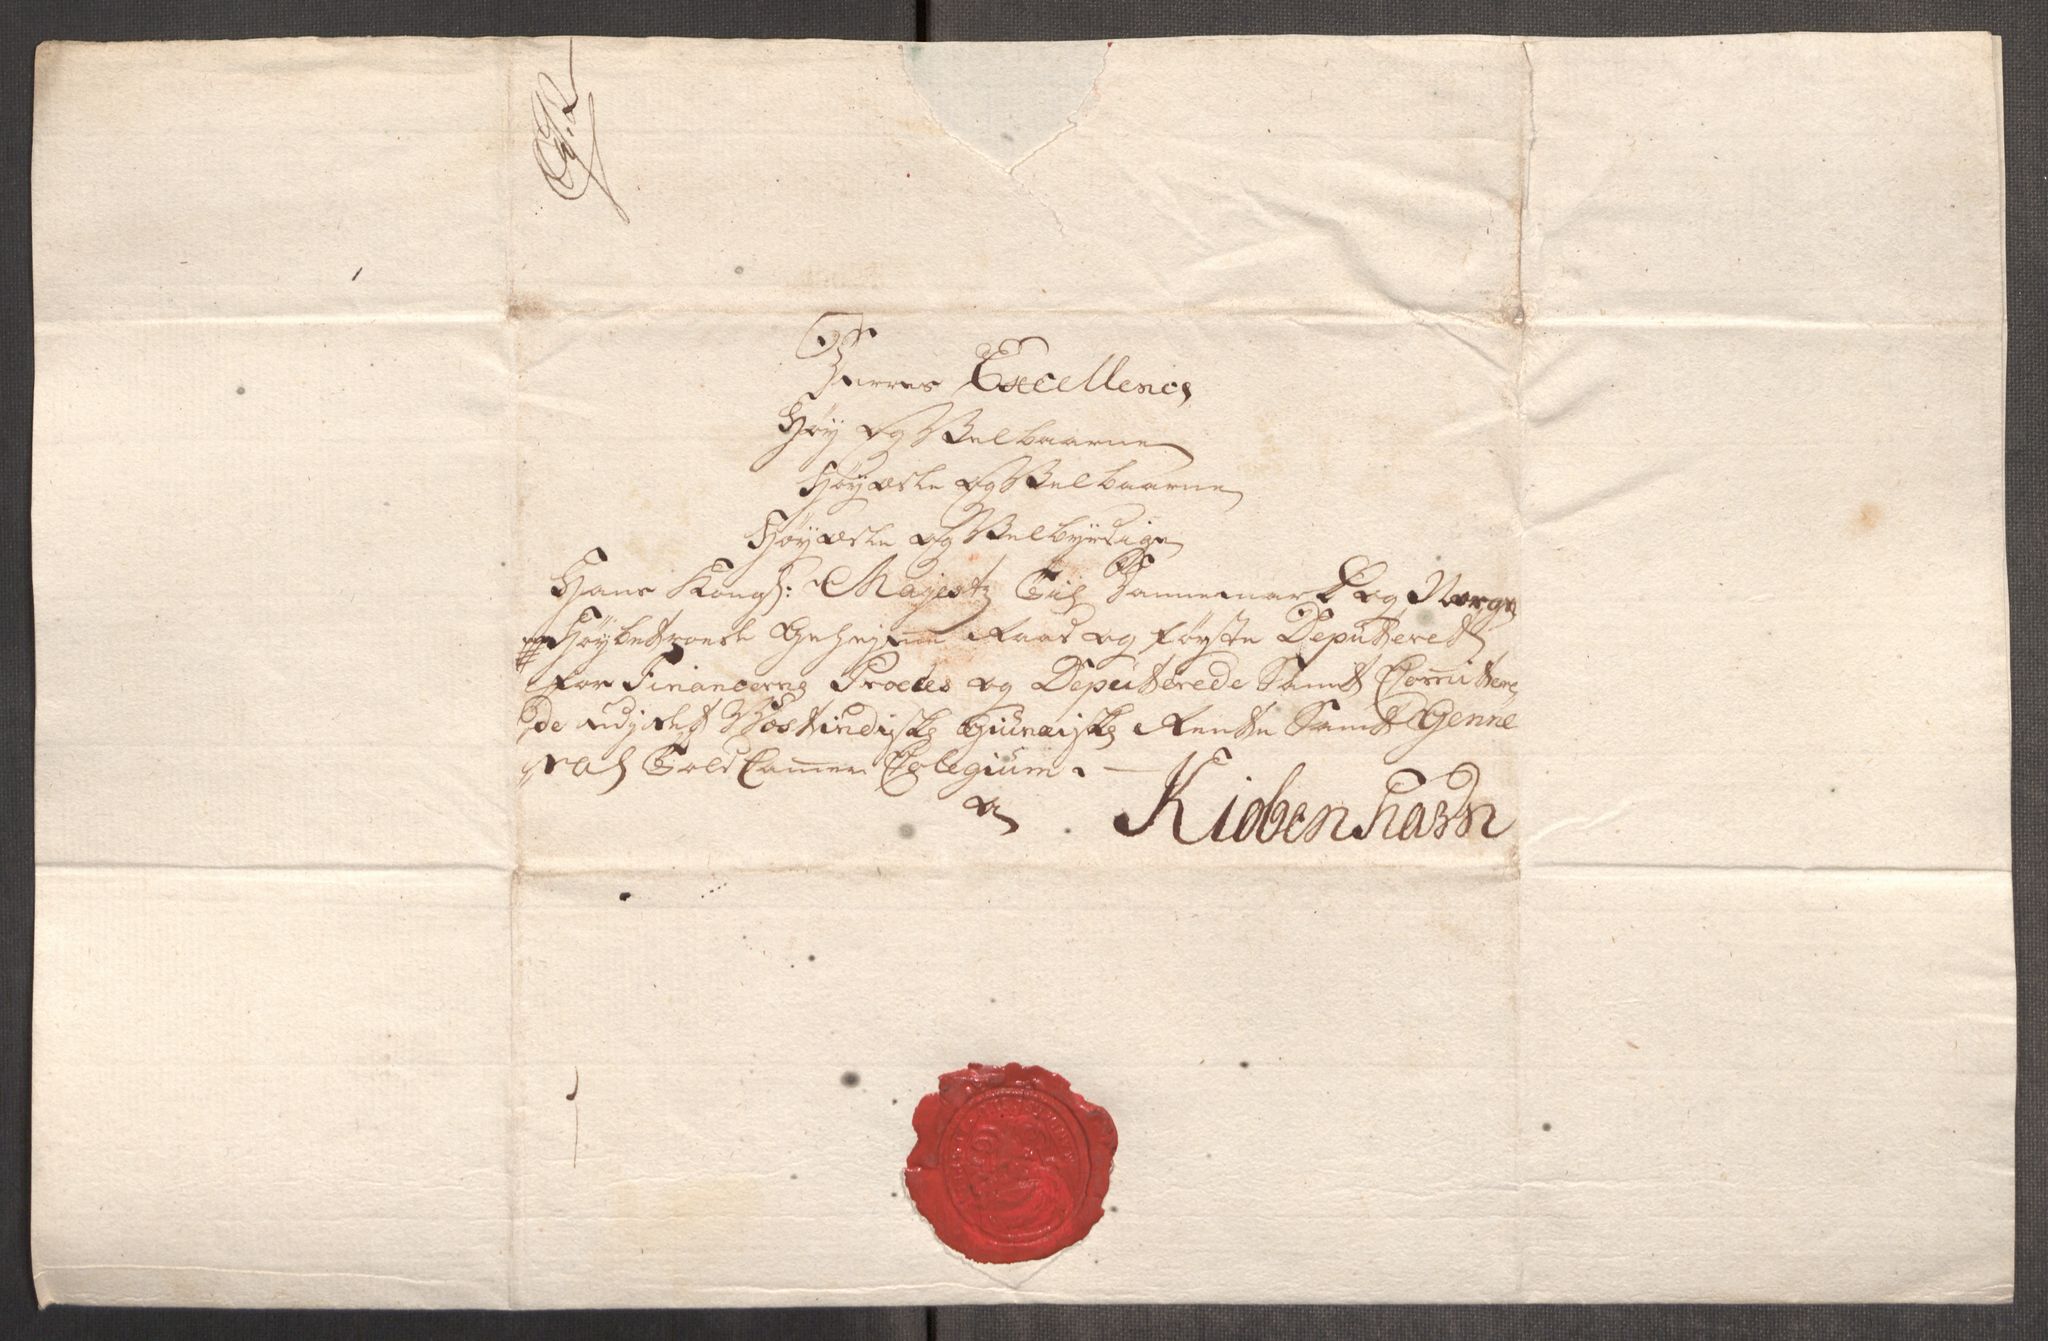 Deres Excellence
Høy og Velbaarne
Høyædle og Velbaarne
Høyædle og Velbyrdige
Hans Kongl: Majestz Til Dannemark og Norge
Høybetroede Gehejme Raad og Første Deputeret
for Financerne Præces og Deputerede Samt Commitere
de udj det Vestindiske Guineiske Rente Samt Genne
ral Told Cammer Colegium.
a
Kiøbenhavn